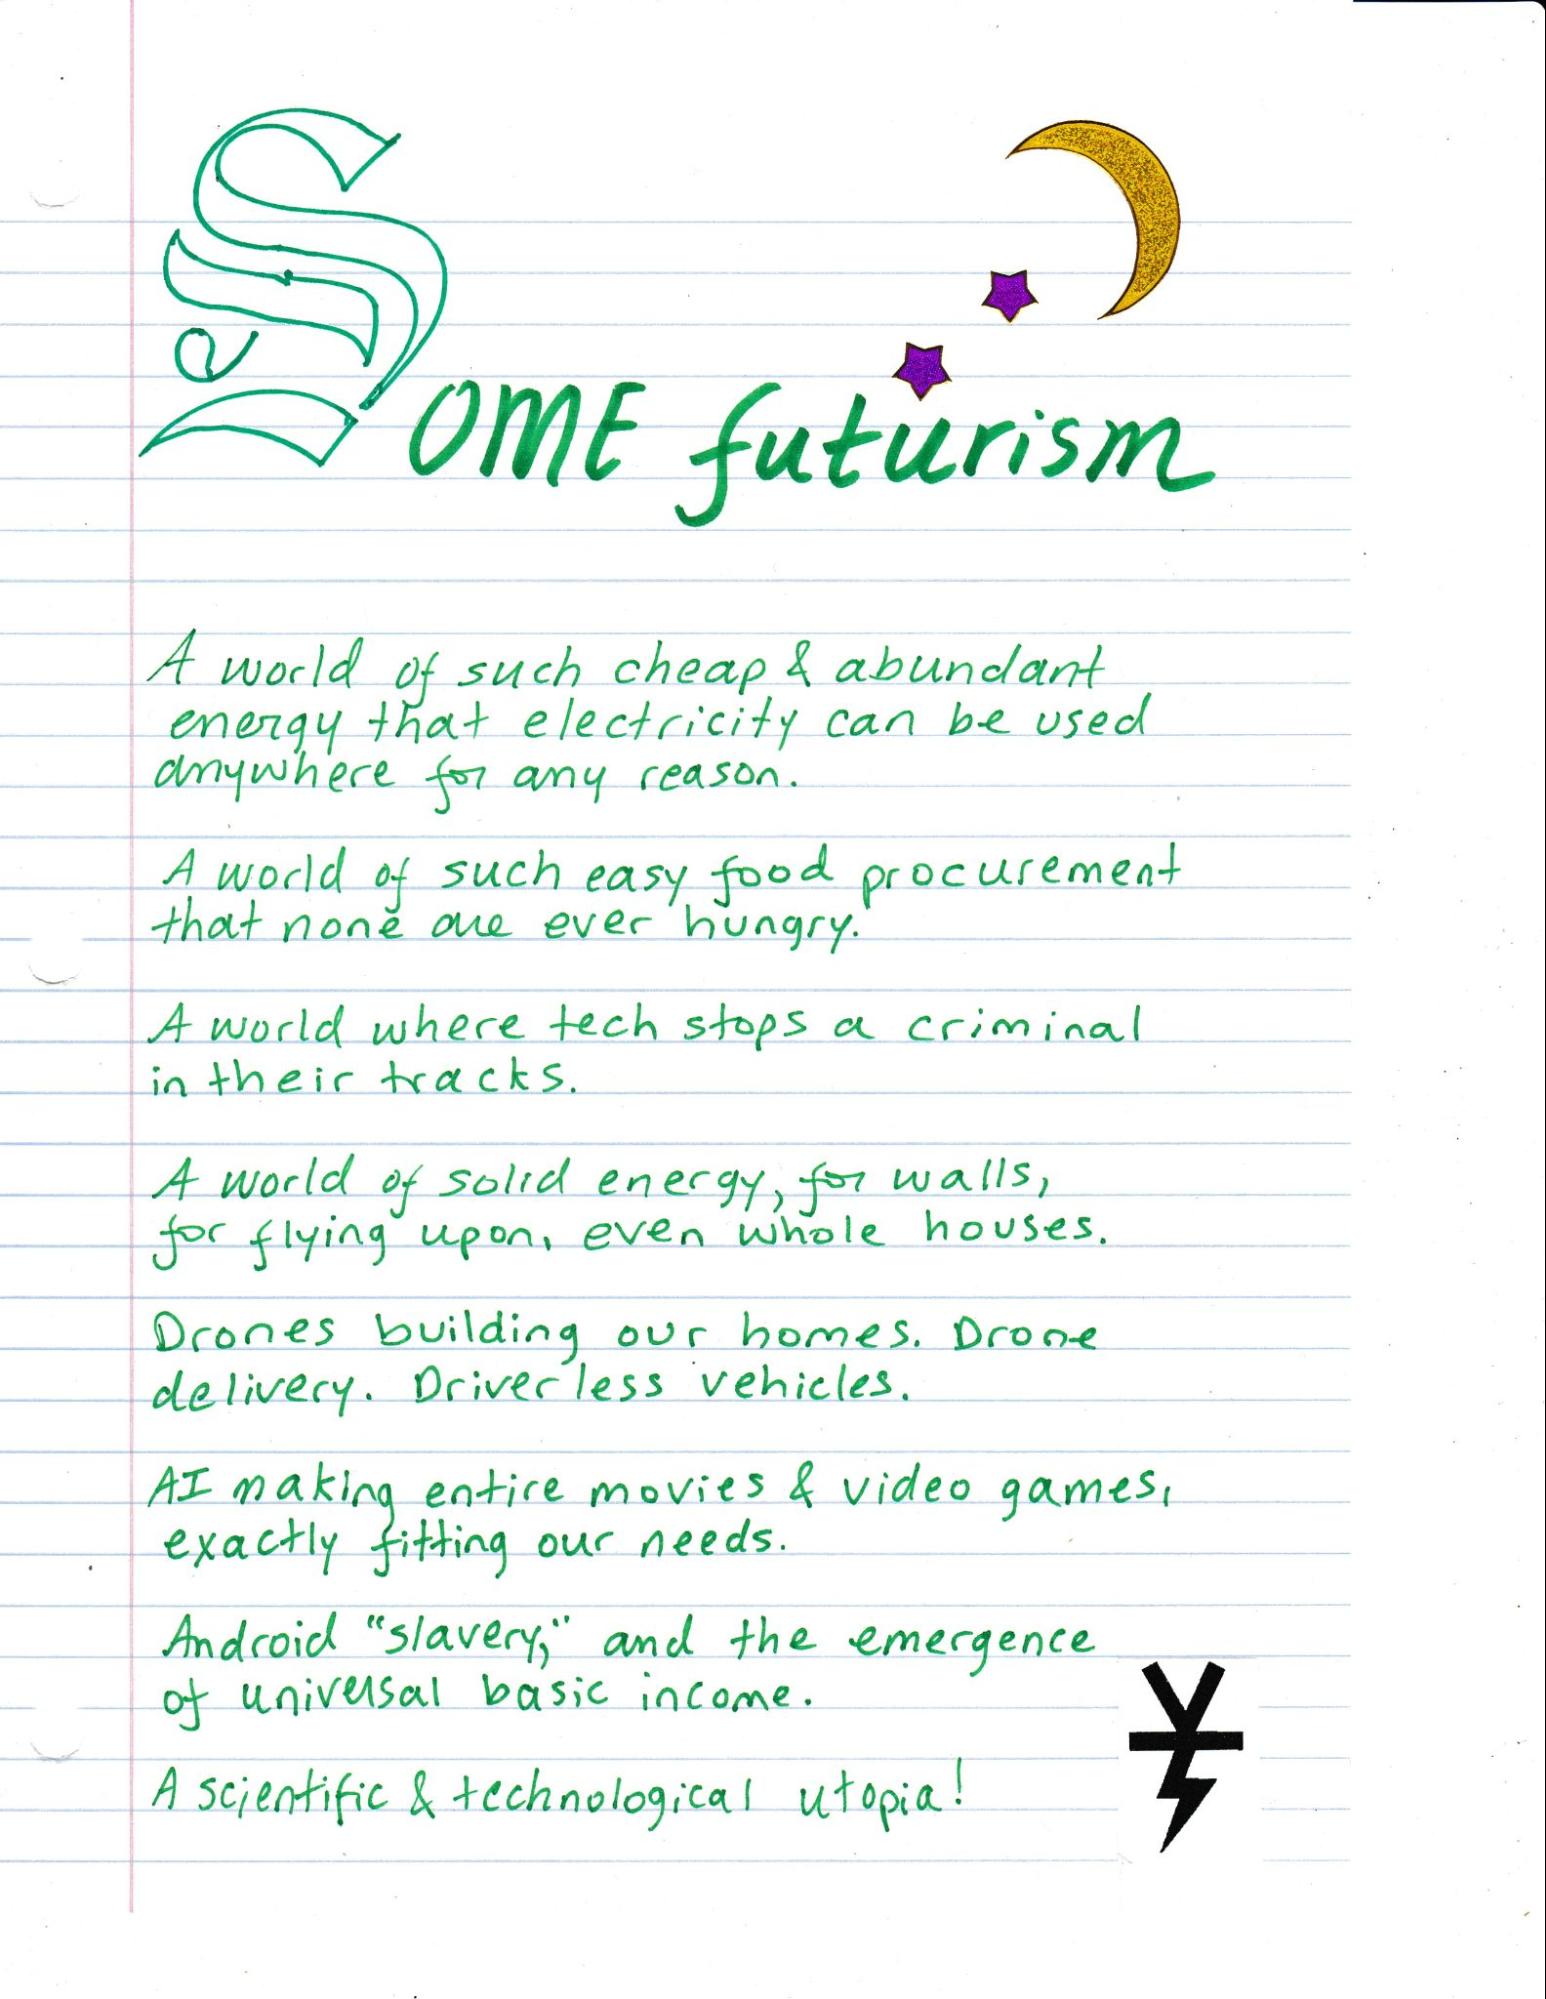 SOME futurism
A world of such cheap & abundant
energy that electricity can be used
anywhere for any reason.
A world of such easy food procurement
that none are ever hungry.
A world where tech stops a criminal
in their tracks.
A world of solid energy, for walls,
for flying upon, even whole houses.
Drones building our homes. Drone
delivery. Driverless vehicles.
AI making entire movies & video games,
exactly fitting our needs.
Android "slavery," and the emergence
of universal basic income.
A scientific & technological utopia!